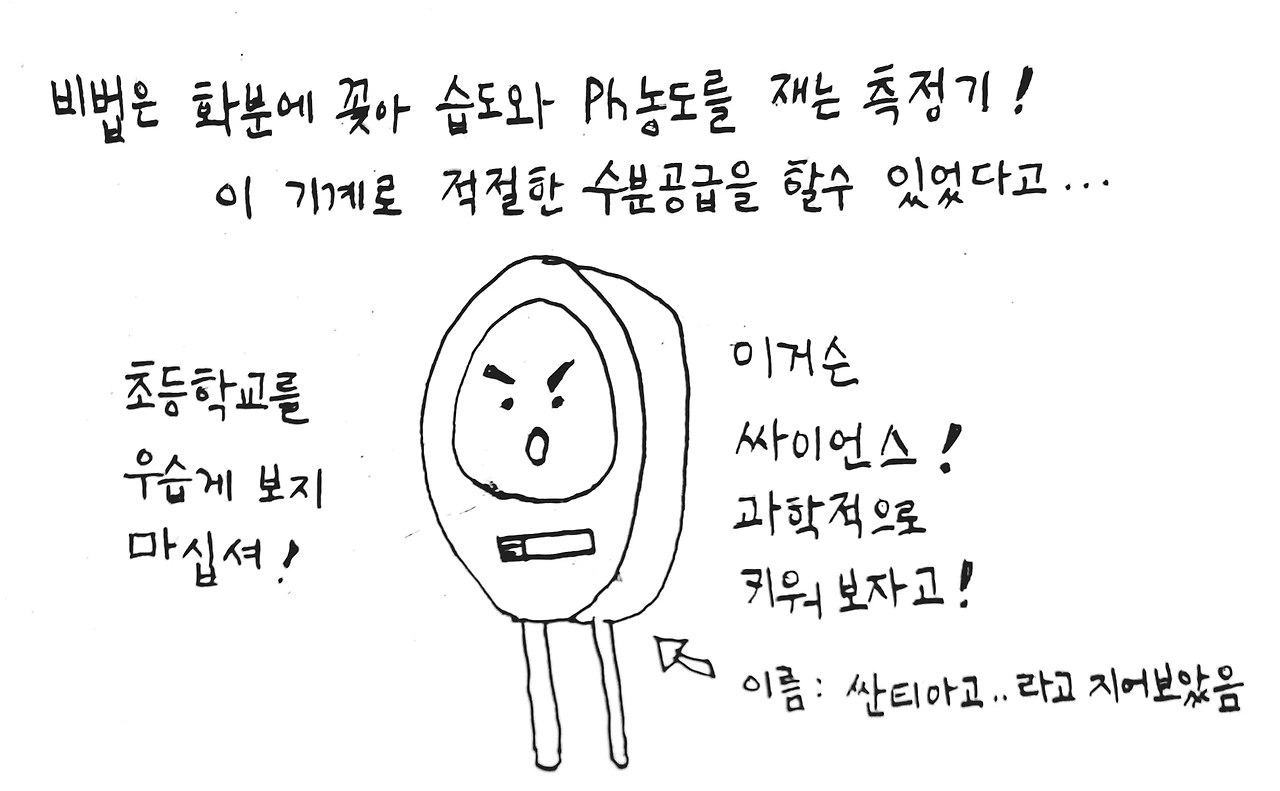 비법은 화분에 꽂아 습도와 Ph농도를 재는 측정기!
이 기계로 적절한 수분공급을 할수 있었다고...
초등학교를
우습게 보지
마십셔!
이거슨
싸이언스!
과학적으로
키워 보자고!
이름: 싼티아고..라고 지어보았음